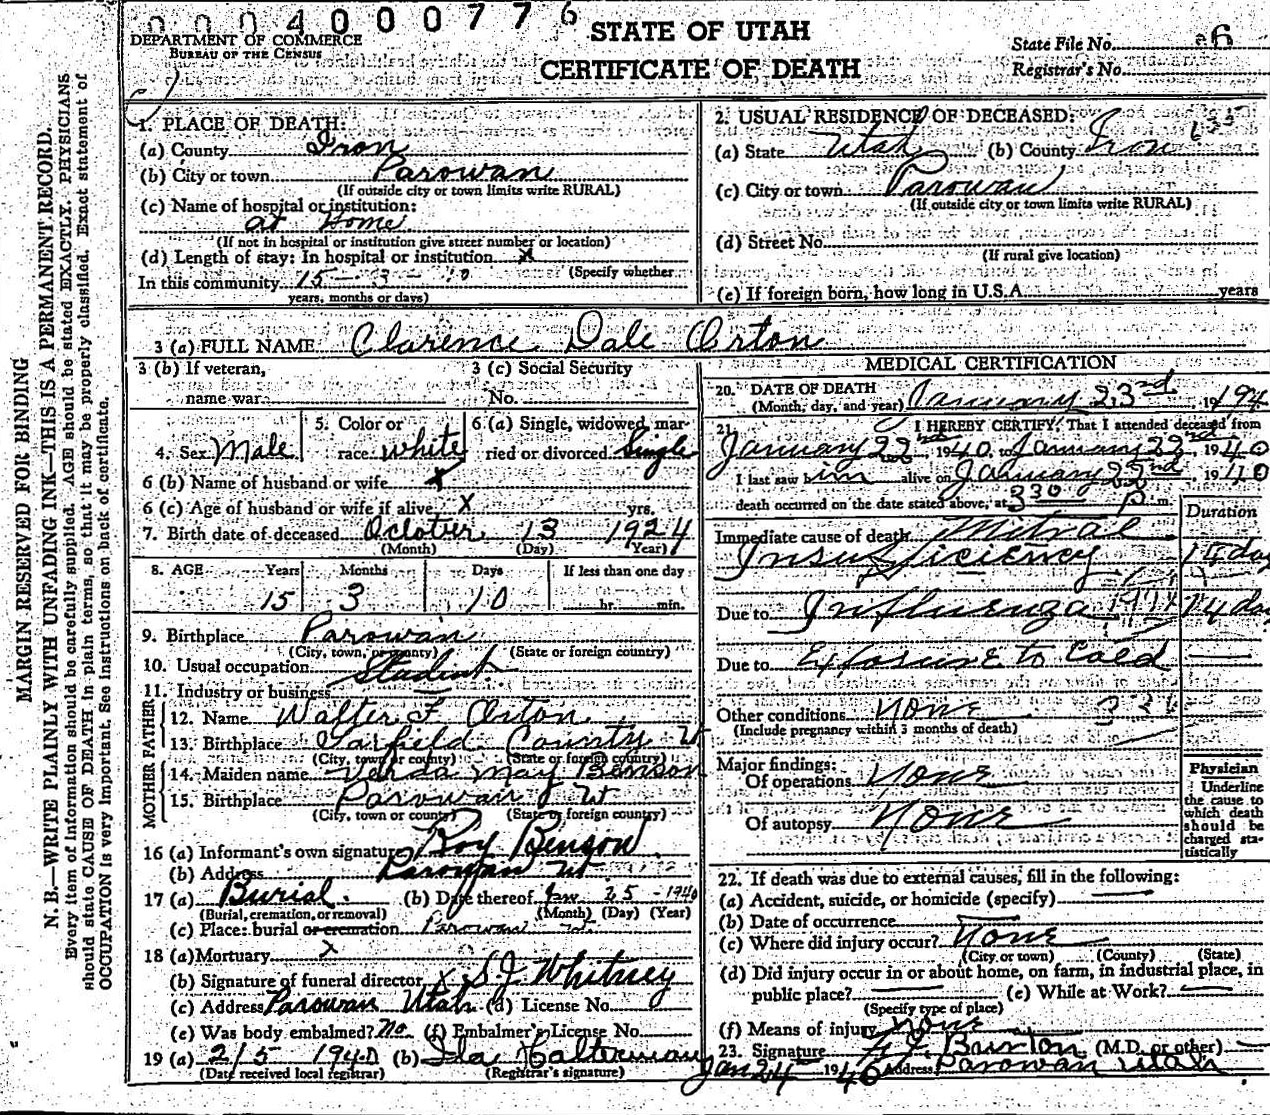 000400077 6
DEPARTMENT OF COMMERCE
BUREAU OF THE CENSUS
STATE OF UTAH
CERTIFICATE OF DEATH
State File No. 6
Registrar's No.
MARGIN RESERVED FOR BINDING
N. B.—WRITE PLAINLY WITH UNFADING INK—THIS IS A PERMANENT RECORD.
Every item of information should be carefully supplied. AGE should be stated EXACTLY. PHYSICIANS
should state CAUSE OF DEATH in plain terms, so that it may be properly classified. Exact statement of
OCCUPATION is very important. See instructions on back of certificate.
1. PLACE OF DEATH:
(a) County Iron
(b) City or town Parowan
(If outside city or town limits write RURAL)
(c) Name of hospital or institution:
at Home
(If not in hospital or institution give street number or location)
(d) Length of stay: In hospital or institution x
(Specify whether
In this community 15 - 3 - 10
years, months or days)
2. USUAL RESIDENCE OF DECEASED:
(a) State Utah (b) County Iron
(c) City or town Parowan
(If outside city or town limits write RURAL)
(d) Street No.
(If rural give location)
(e) If foreign born, how long in U.S.A. years
3 (a) FULL NAME Clarence Dale Orton
3 (b) If veteran,
name war
3 (c) Social Security
No.
4. Sex Male
5. Color or
race white
6 (a) Single, widowed, mar-
ried or divorced Single
6 (b) Name of husband or wife x
6 (c) Age of husband or wife if alive x yrs.
7. Birth date of deceased October 13 1924
(Month) (Day) Year)
8. AGE Years Months Days If less than one day
15 3 10 hr. min.
9. Birthplace Parowan
(City, town, or county) (State or foreign country)
10. Usual occupation Student
11. Industry or business
FATHER
12. Name Walter F. Orton
13. Birthplace Garfield County U
(City, town or county) (State or foreign country)
MOTHER
14. Maiden name Verda May Benson
15. Birthplace Parowan Ut
(City, town or county) (State or foreign country)
16 (a) Informant's own signature Roy Benson
(b) Address Parowan Ut
17 (a) Burial (b) Date thereof Jan 25 - 1940
(Burial, cremation, or removal) (Month) (Day) (Year)
(c) Place: burial or cremation Parowan Ut.
18 (a) Mortuary x
(b) Signature of funeral director x S J Whitney
(c) Address Parowan Utah (d) License No.
(e) Was body embalmed? No (f) Embalmer's License No.
19 (a) 2/5 1940 (b) Ida Halterman
(Date received local registrar) (Registrar's signature)
MEDICAL CERTIFICATION
20. DATE OF DEATH
(Month, day, and year) January 23rd, 194
21. I HEREBY CERTIFY, That I attended deceased from
January 22nd 1940 to January 22nd 1940
I last saw him alive on January 22nd 1940
death occurred on the date stated above, at 330 P m
Duration
Immediate cause of death Mitral
Insufficiency 14 day
Due to Influenza 14 day
Due to Exposure to Cold
Other conditions None
(Include pregnancy within 3 months of death)
Major findings:
Of operations None
Of autopsy None
Physician
Underline
the cause to
which death
should be
charged sta-
tistically
22. If death was due to external causes, fill in the following:
(a) Accident, suicide, or homicide (specify)
(b) Date of occurrence
(c) Where did injury occur? None
(City or town) (County) (State)
(d) Did injury occur in or about home, on farm, in industrial place, in
public place? (e) While at Work?
(Specify type of place)
(f) Means of injury None
23. Signature Burton (M.D. or other)
Jan 24 1940 Address Parowan Utah